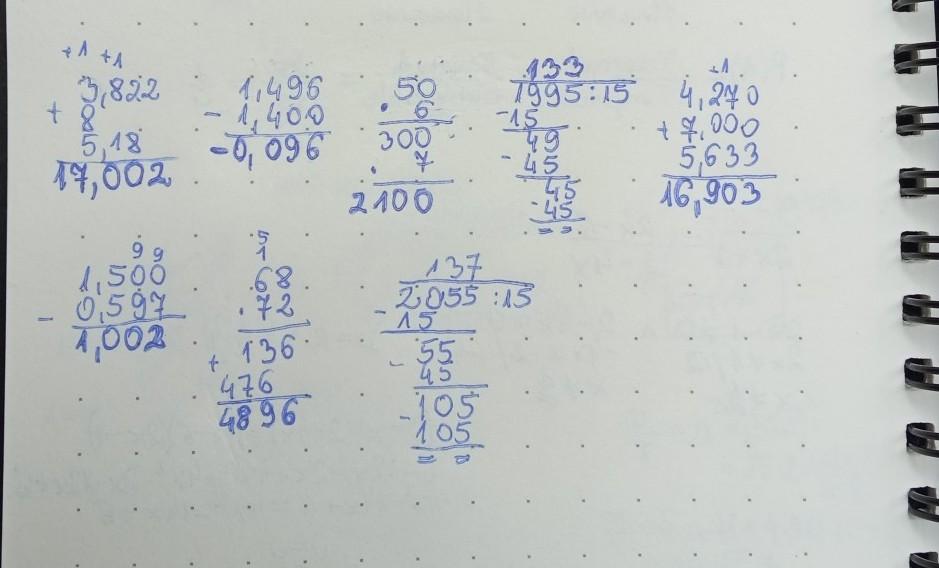 +1 +1
3,822
+ 8
5,18
17,002
1,496
- 1,400
-0,096
50
· 6
300
· 7
2100
133
1995:15
-15
49
- 45
45
-45
= =
+1
4,270
+ 7,000
5,633
16,903
99
1,500
- 0,597
1,002
5
1
68
.72
+ 136
476
4896
137
2055:15
- 15
55
- 45
105
- 105
= =